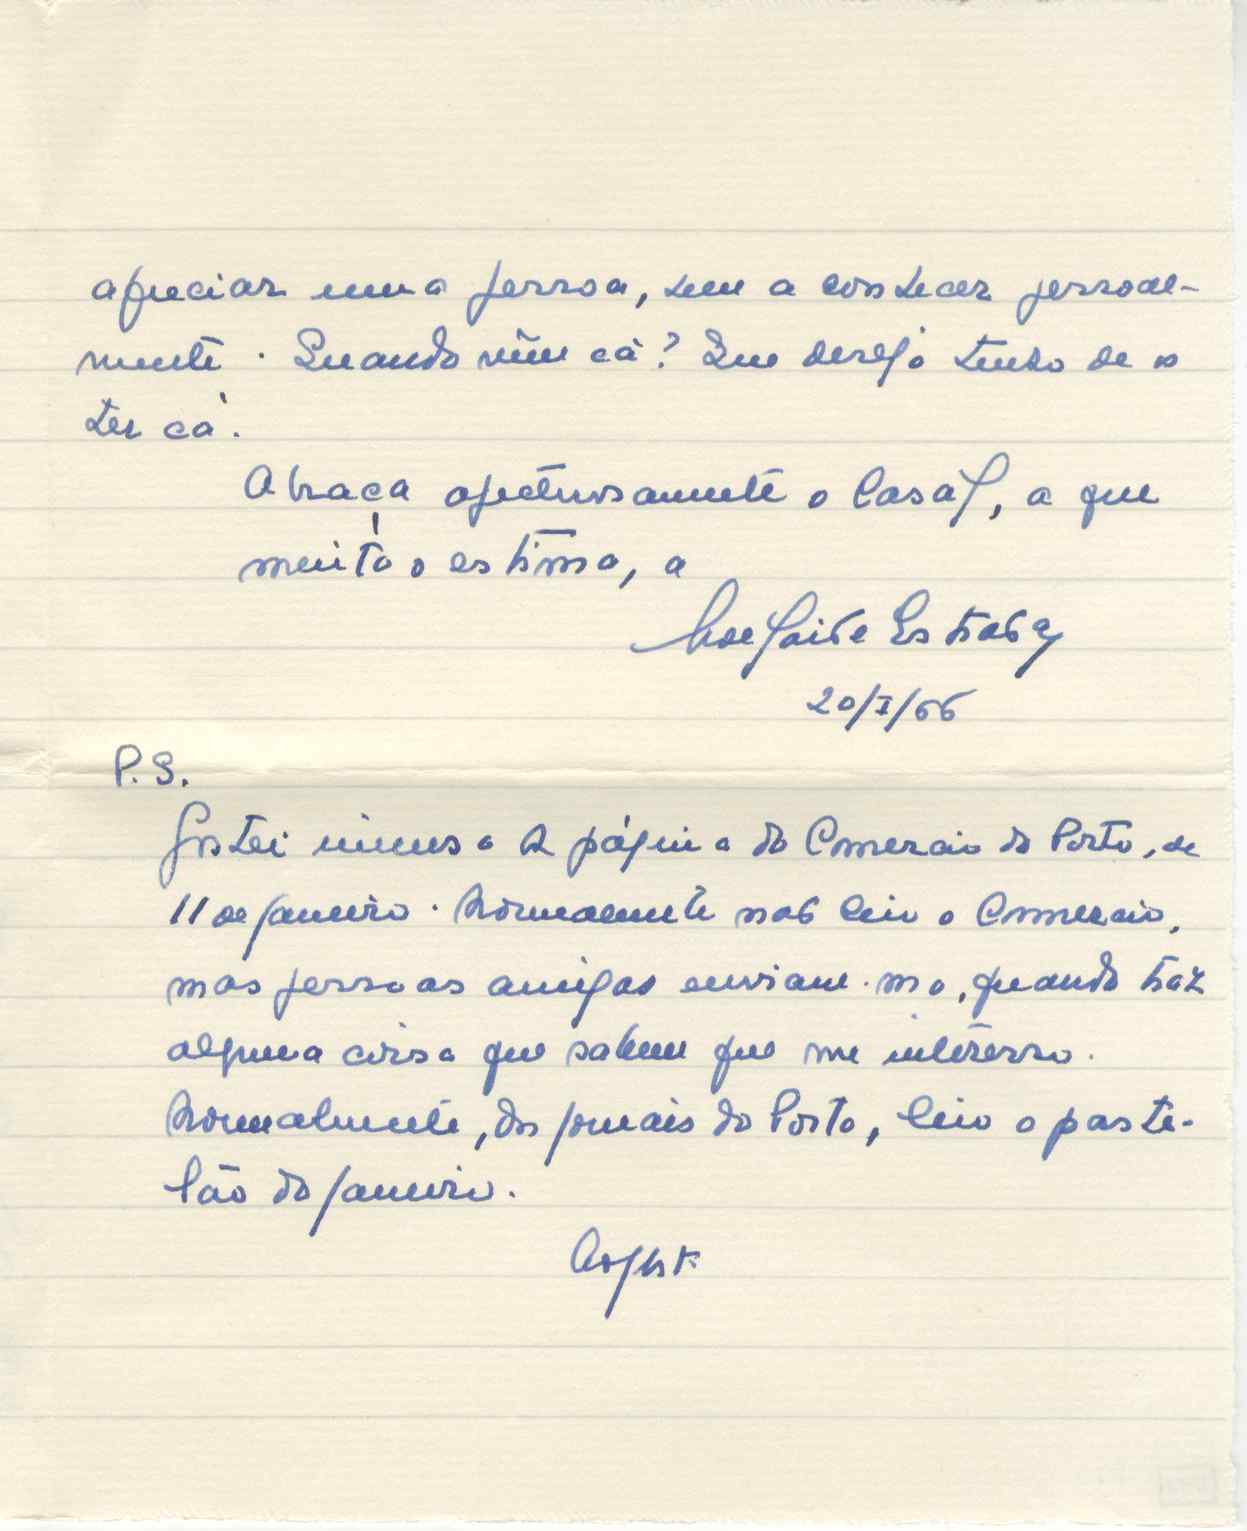 apreciar uma pessoa, sem a conhecer pessoal-
mente. Quando vêm cá? Que desejo tenho de os
ter cá!
Abraça afectuosamente o Casal, a que
muito o estima, a
Adelaide Estrada
20/I/66
P.S.
Gostei imenso da página do Comércio do Porto, de
11 de Janeiro. Normalmente não leio o Comércio,
mas pessoas amigas enviam-mo, quando traz
alguma coisa que sabem que me interessa.
Normalmente, dos jornais do Porto, leio o paste-
lão do Janeiro.